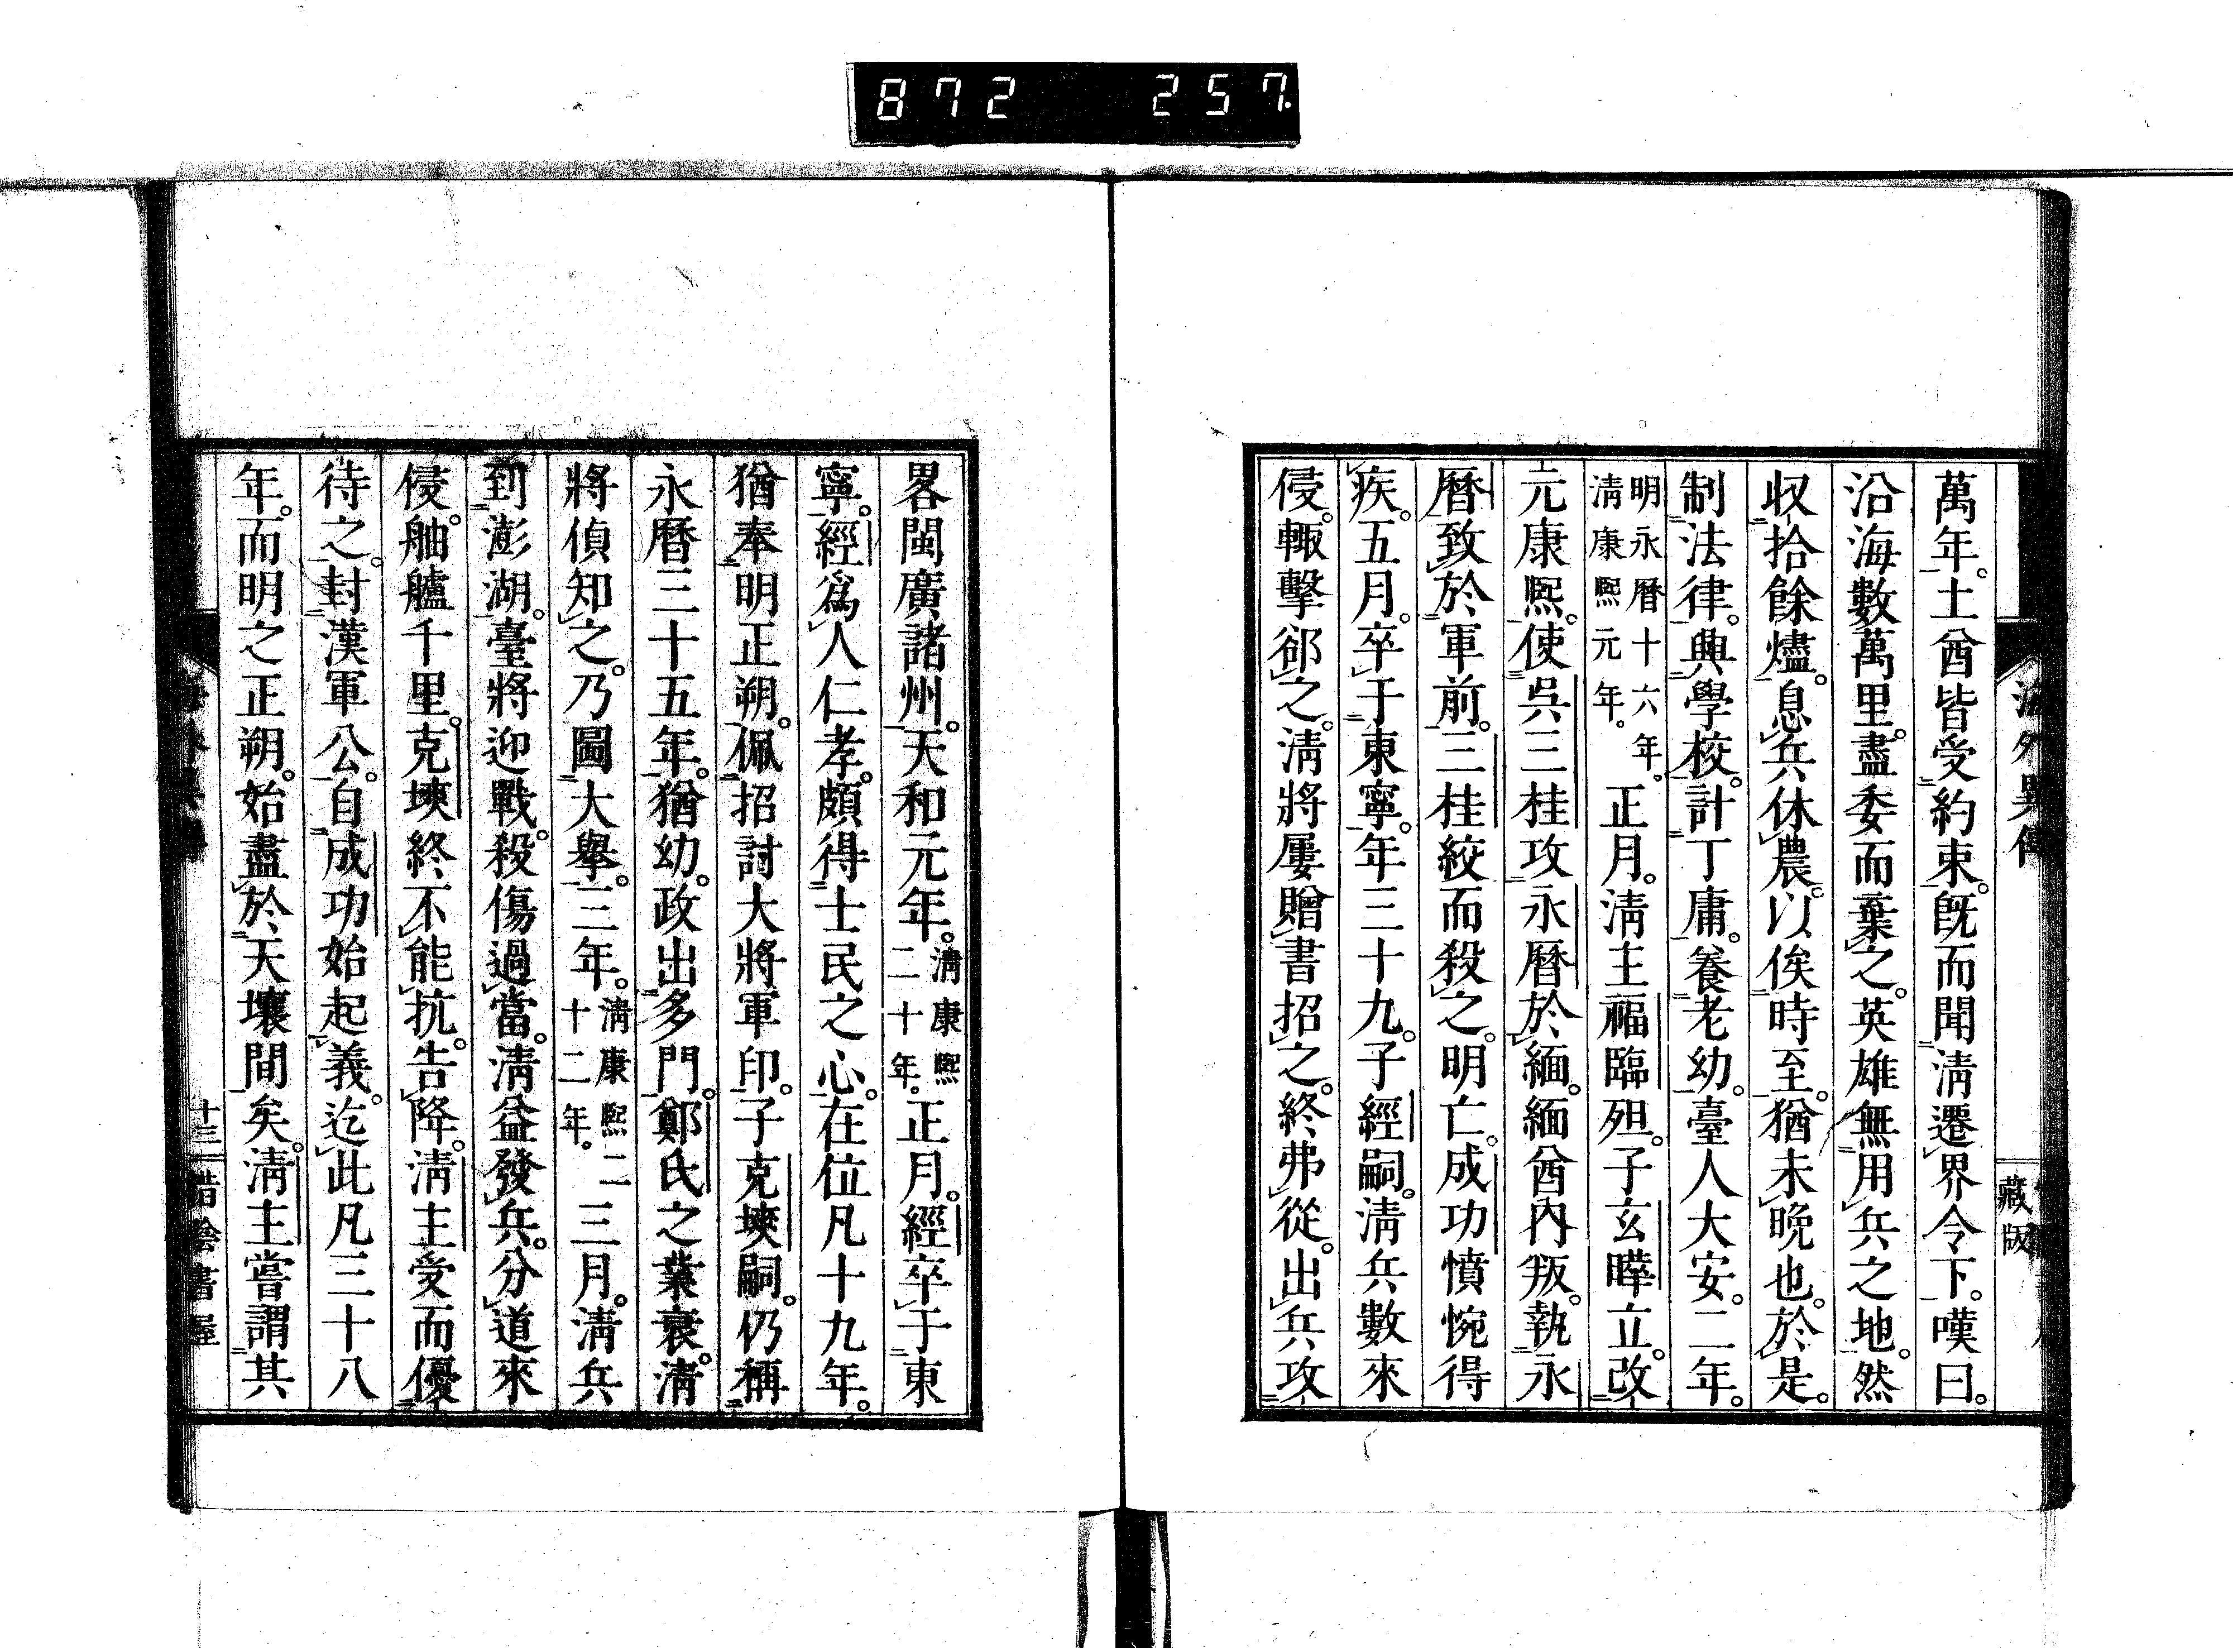 872 257.
海外異傳
藏版
萬年。土酋皆受約束。既而聞淸遷界令下。嘆曰。
沿海數萬里。盡委而棄之。英雄無用兵之地。然
収拾餘燼。息兵休農。以俟時至。猶未晩也。於是。
制法律。興學校。計丁庸。養老幼。臺人大安。二年。
明永曆十六年。淸康熙元年。正月。淸主福臨殂。子玄曄立。改
元康熙。使吳三桂攻永曆於緬。緬酋內叛。執永
曆致於軍前。三桂絞而殺之。明亡。成功憤惋得
疾。五月。卒于東寧。年三十九。子經嗣。淸兵數來
侵。輙擊郤之。淸將屢贈書招之。終弗從。出兵攻
畧閩廣諸州。天和元年。淸康熙二十年。正月。經卒于東
寧。經爲人仁孝。頗得士民之心。在位凡十九年。
猶奉明正朔。佩招討大將軍印。子克塽嗣。仍稱
永曆三十五年。猶幼。政出多門。鄭氏之業衰。淸
將偵知之。乃圖大擧。三年。淸康熙二十二年。三月。淸兵
到澎湖。臺將迎戰。殺傷過當。淸益發兵。分道來
侵。舳艫千里。克塽終不能抗。告降。淸主受而優
待之。封漢軍公。自成功始起義。迄此凡三十八
年。而明之正朔。始盡於天壤間矣。淸主嘗謂其
十三
惜陰書屋